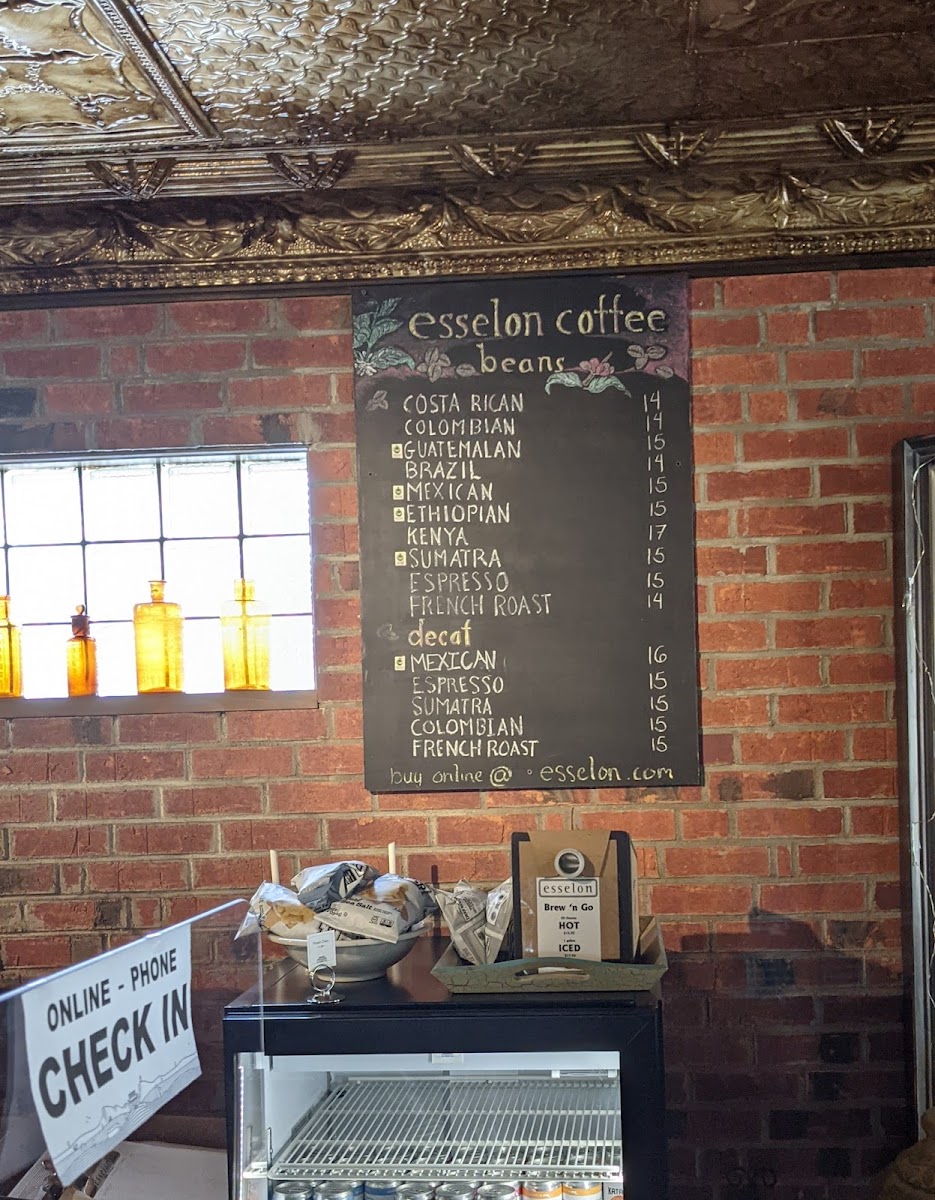 esselon coffee
beans
COSTA RICAN 14
COLOMBIAN 14
GUATEMALAN 15
BRAZIL 14
MEXICAN 15
ETHIOPIAN 15
KENYA 17
SUMATRA 15
ESPRESSO 15
FRENCH ROAST 14
decaf
MEXICAN 16
ESPRESSO 15
SUMATRA 15
COLOMBIAN 15
FRENCH ROAST 15
buy online @ esselon.com
esselon
Brew 'n Go
HOT
ICED
Sea Salt
ONLINE - PHONE
CHECK IN